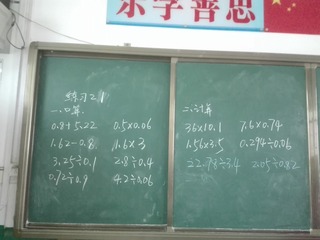 乐学善思
练习21
一、口算
0.8+5.22 0.5×0.06
1.62-0.8 1.6×3
3.25÷0.1 2.8÷0.4
0.72÷0.9 4.2÷0.06
二、计算
36×10.1 7.6×0.74
1.56×3.5 0.294÷0.06
22.78÷3.4 2.05÷0.82